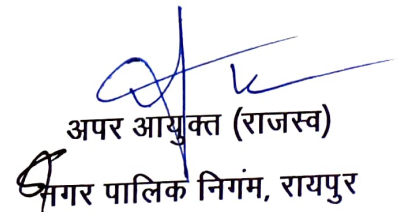 अपर आयुक्त (राजस्व)
नगर पालिक निगंम, रायपुर